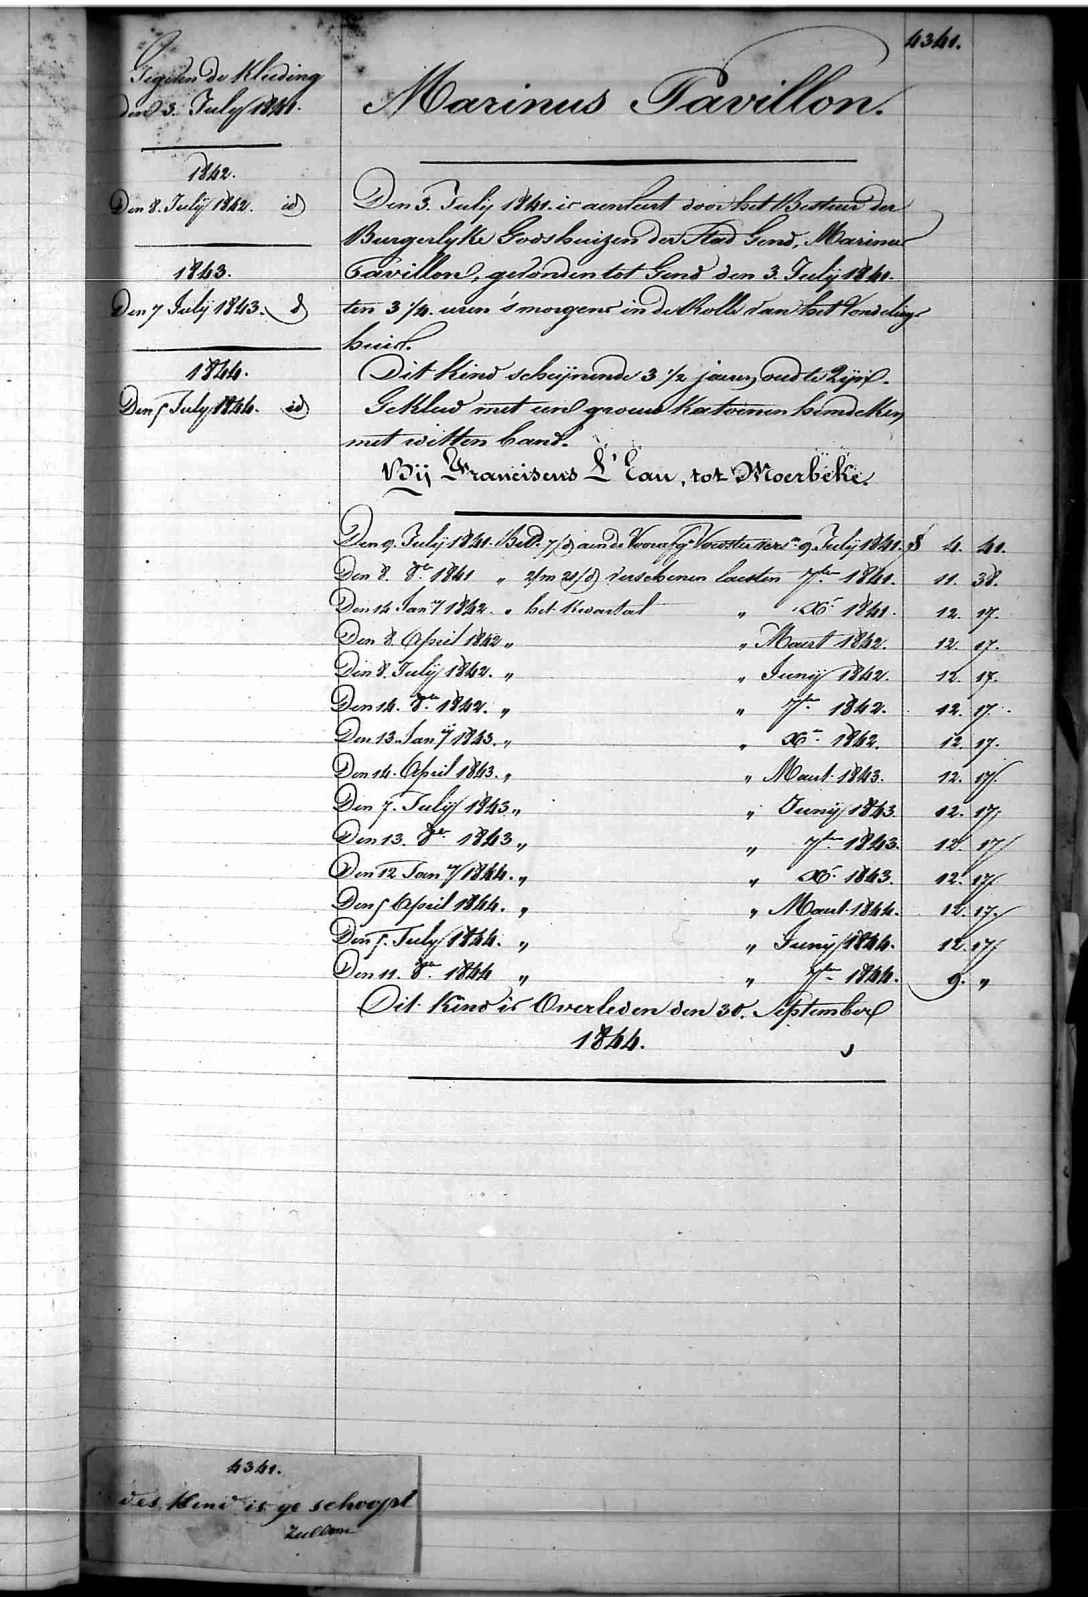 4341.
Gegeven de Kleeding
den 3. July 1841.
1842.
Den 8. Julÿ 1842. id
1843.
Den 7 Julÿ 1843. d
1844.
Den 5 July 1844. id
Marinus Pavillon.
Den 3. Julÿ 1841. is aenveert door het Bestuur der
Burgerlyke Godshuizen der Stad Gend, Marinus
Pavillon, gevonden tot Gend den 3. Julÿ 1841.
ten 3 1/4 uren 's morgens in de Rolle van het Vondelings
huis.
Dit Kind schynende 3 1/2 jaeren oud te Zÿn.
Gekleed met een groene Katoenen hemdeken,
met witten band.
Bÿ Franciscus L'Eau, tot Moerbeke.
Den 9. Julÿ 1841. Bet. 7/d aen de Voorafge Voedster vers.n 9 July 1841. 4. 41.
Den 8. 8er 1841 „ 2/m 21/d verschenen laesten 7ber 1841. 11. 38.
Den 14 Jan.y 1842. „ het Kwartal „ Xr 1841. 12. 17.
Den 8. April 1842 „ „ Maert 1842. 12. 17.
Den 8. Julÿ 1842. „ „ Junÿ 1842. 12. 17.
Den 14. 8er 1842. „ „ 7ber 1842. 12. 17.
Den 13. Jan.y 1843. „ „ Xr 1842. 12. 17.
Den 14. April 1843. „ „ Maert 1843. 12. 17.
Den 7. Julÿ 1843 „ „ Junÿ 1843. 12. 17.
Den 13. 8er 1843 „ „ 7ber 1843. 12. 17.
Den 12 Jan.y 1844. „ „ Xr 1843. 12. 17.
Den 5 April 1844. „ „ Maert 1844. 12. 17.
Den 5. July 1844. „ „ Junÿ 1844. 12. 17.
Den 11. 8er 1844 „ „ 7ber 1844. 9. „
Dit Kind is Overleden den 30. September
1844.
4341.
des Kend is ge schoopt